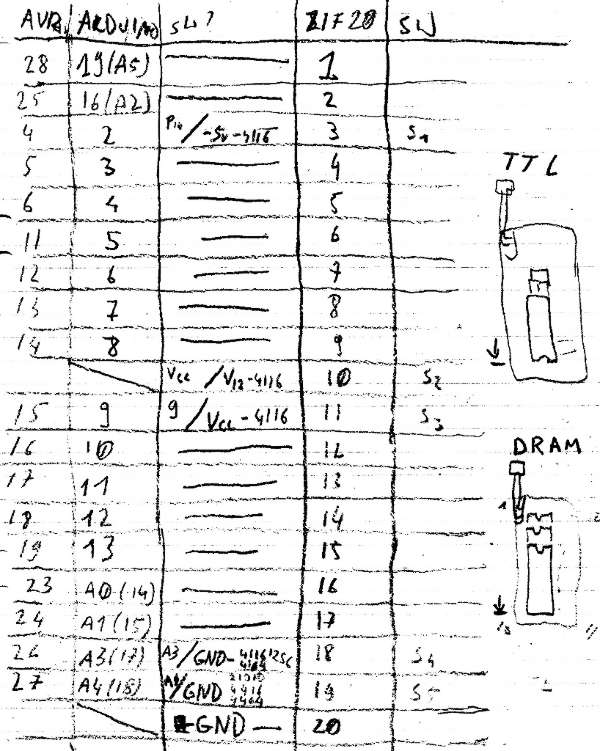 AVR ARDUINO SW? ZIF20 SW
28 19(A5) 1
25 16(A2) 2
4 2 Pin/-5V-4116 3 S1
5 3 4
6 4 5
11 5 6
12 6 7
13 7 8
14 8 9
Vcc /V12-4116 10 S2
15 9 9/Vcc-4116 11 S3
16 10 12
17 11 13
18 12 14
19 13 15
23 A0(14) 16
24 A1(15) 17
26 A3(17) A3/GND- 4116 18 S4
27 A4(18) A4/GND 19 S5
GND 20
TTL
DRAM
1